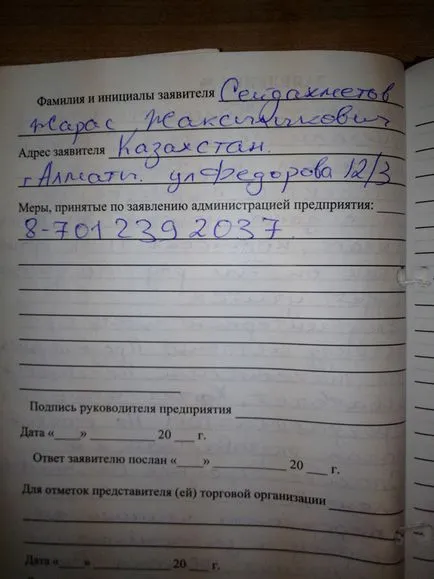 Фамилия и инициалы заявителя Сейдахметов
Жарас
Адрес заявителя Казахстан.
г Алматы. ул Федорова 12/3
Меры, принятые по заявлению администрацией предприятия:
8-701 239 2037
Подпись руководителя предприятия
Дата «___» ________ 20 ___ г.
Ответ заявителю послан «___» ________ 20 ___ г.
Для отметок представителя (ей) торговой организации
Дата «___» ________ 20 ___ г.